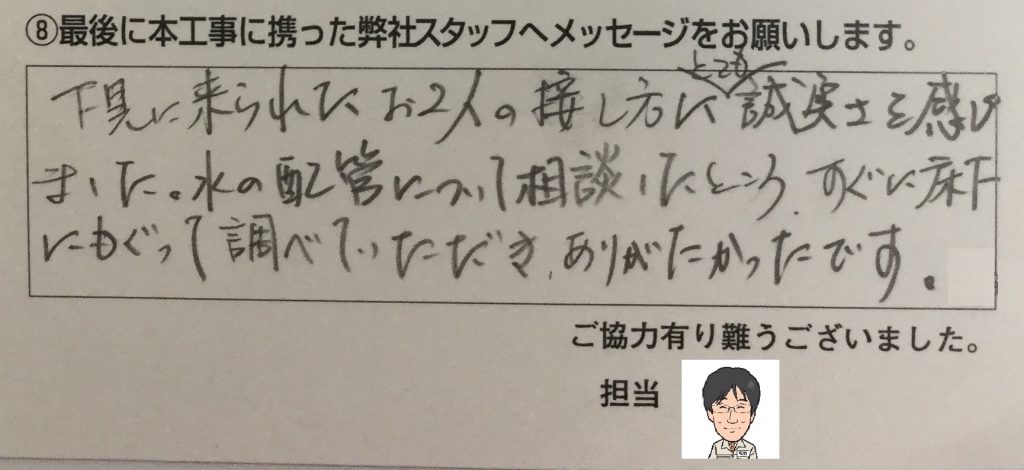 ⑧最後に本工事に携った弊社スタッフへメッセージをお願いします。
下見に来られたお2人の接し方にとても誠実さを感じ
ました。水の配管について相談したところ、すぐに床下
にもぐって調べていただき、ありがたかったです。
ご協力有り難うございました。
担当